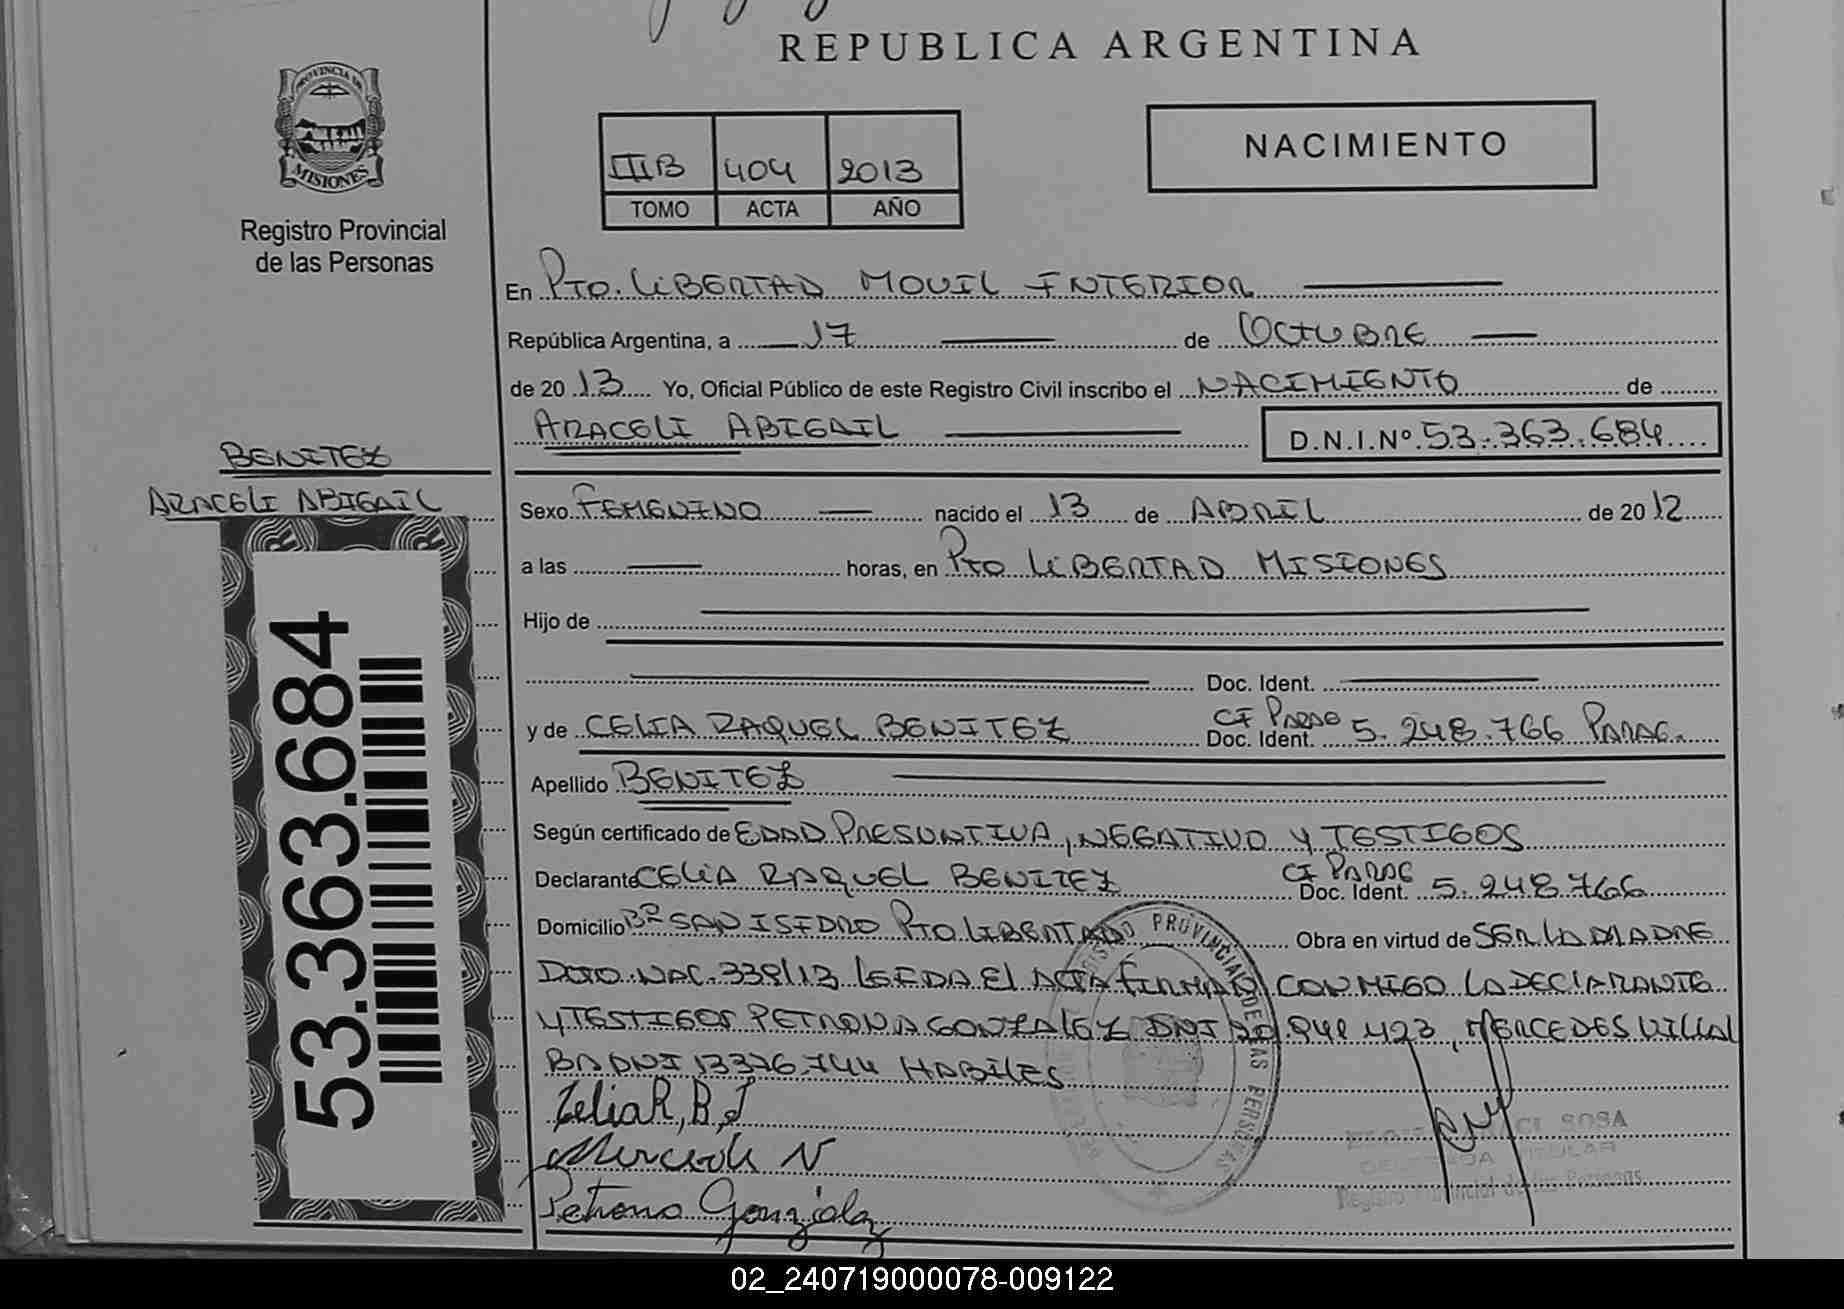 REPUBLICA ARGENTINA
PROVINCIA DE
MISIONES
Registro Provincial
de las Personas
IIIB 404 2013
TOMO ACTA AÑO
NACIMIENTO
En Pto. LIBERTAD MOVIL INTERIOR
República Argentina, a 17 de OCTUBRE
de 2013 Yo, Oficial Público de este Registro Civil inscribo el NACIMIENTO de
ARACELI ABIGAIL D.N.I.Nº 53.363.684
BENITEZ
ARACELI ABIGAIL
53.363.684
Sexo FEMENINO nacido el 13 de ABRIL de 2012
a las horas, en Pto LIBERTAD MISIONES
Hijo de
Doc. Ident.
y de CELIA RAQUEL BENITEZ CI PARAG Doc. Ident. 5.248.766 PARAG.
Apellido BENITEZ
Según certificado de EDAD PRESUNTIVA, NEGATIVO Y TESTIGOS
Declarante CELIA RAQUEL BENITEZ CI PARAG Doc. Ident. 5.248.766
Domicilio Bº SAN ISIDRO Pto LIBERTAD Obra en virtud de SER LA MADRE
NAC. 338/13 LEIDA EL ACTA FIRMAN CONMIGO LA DECLARANTE
Y TESTIGOS PETRONA GONZALEZ DNI 423, MERCEDES VILLAL
BA DNI 13376.744 HABILES
Celia R, B,
Mercede V
Petrona Gonzalez
REGISTRO PROVINCIAL DE LAS PERSONAS
SOSA
DELEGADA TITULAR
Registro Provincial de las Personas
02_240719000078-009122